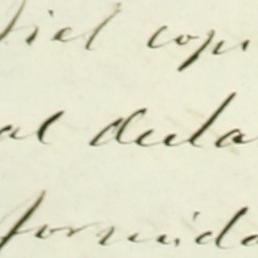 ficl copi
al decla
formida